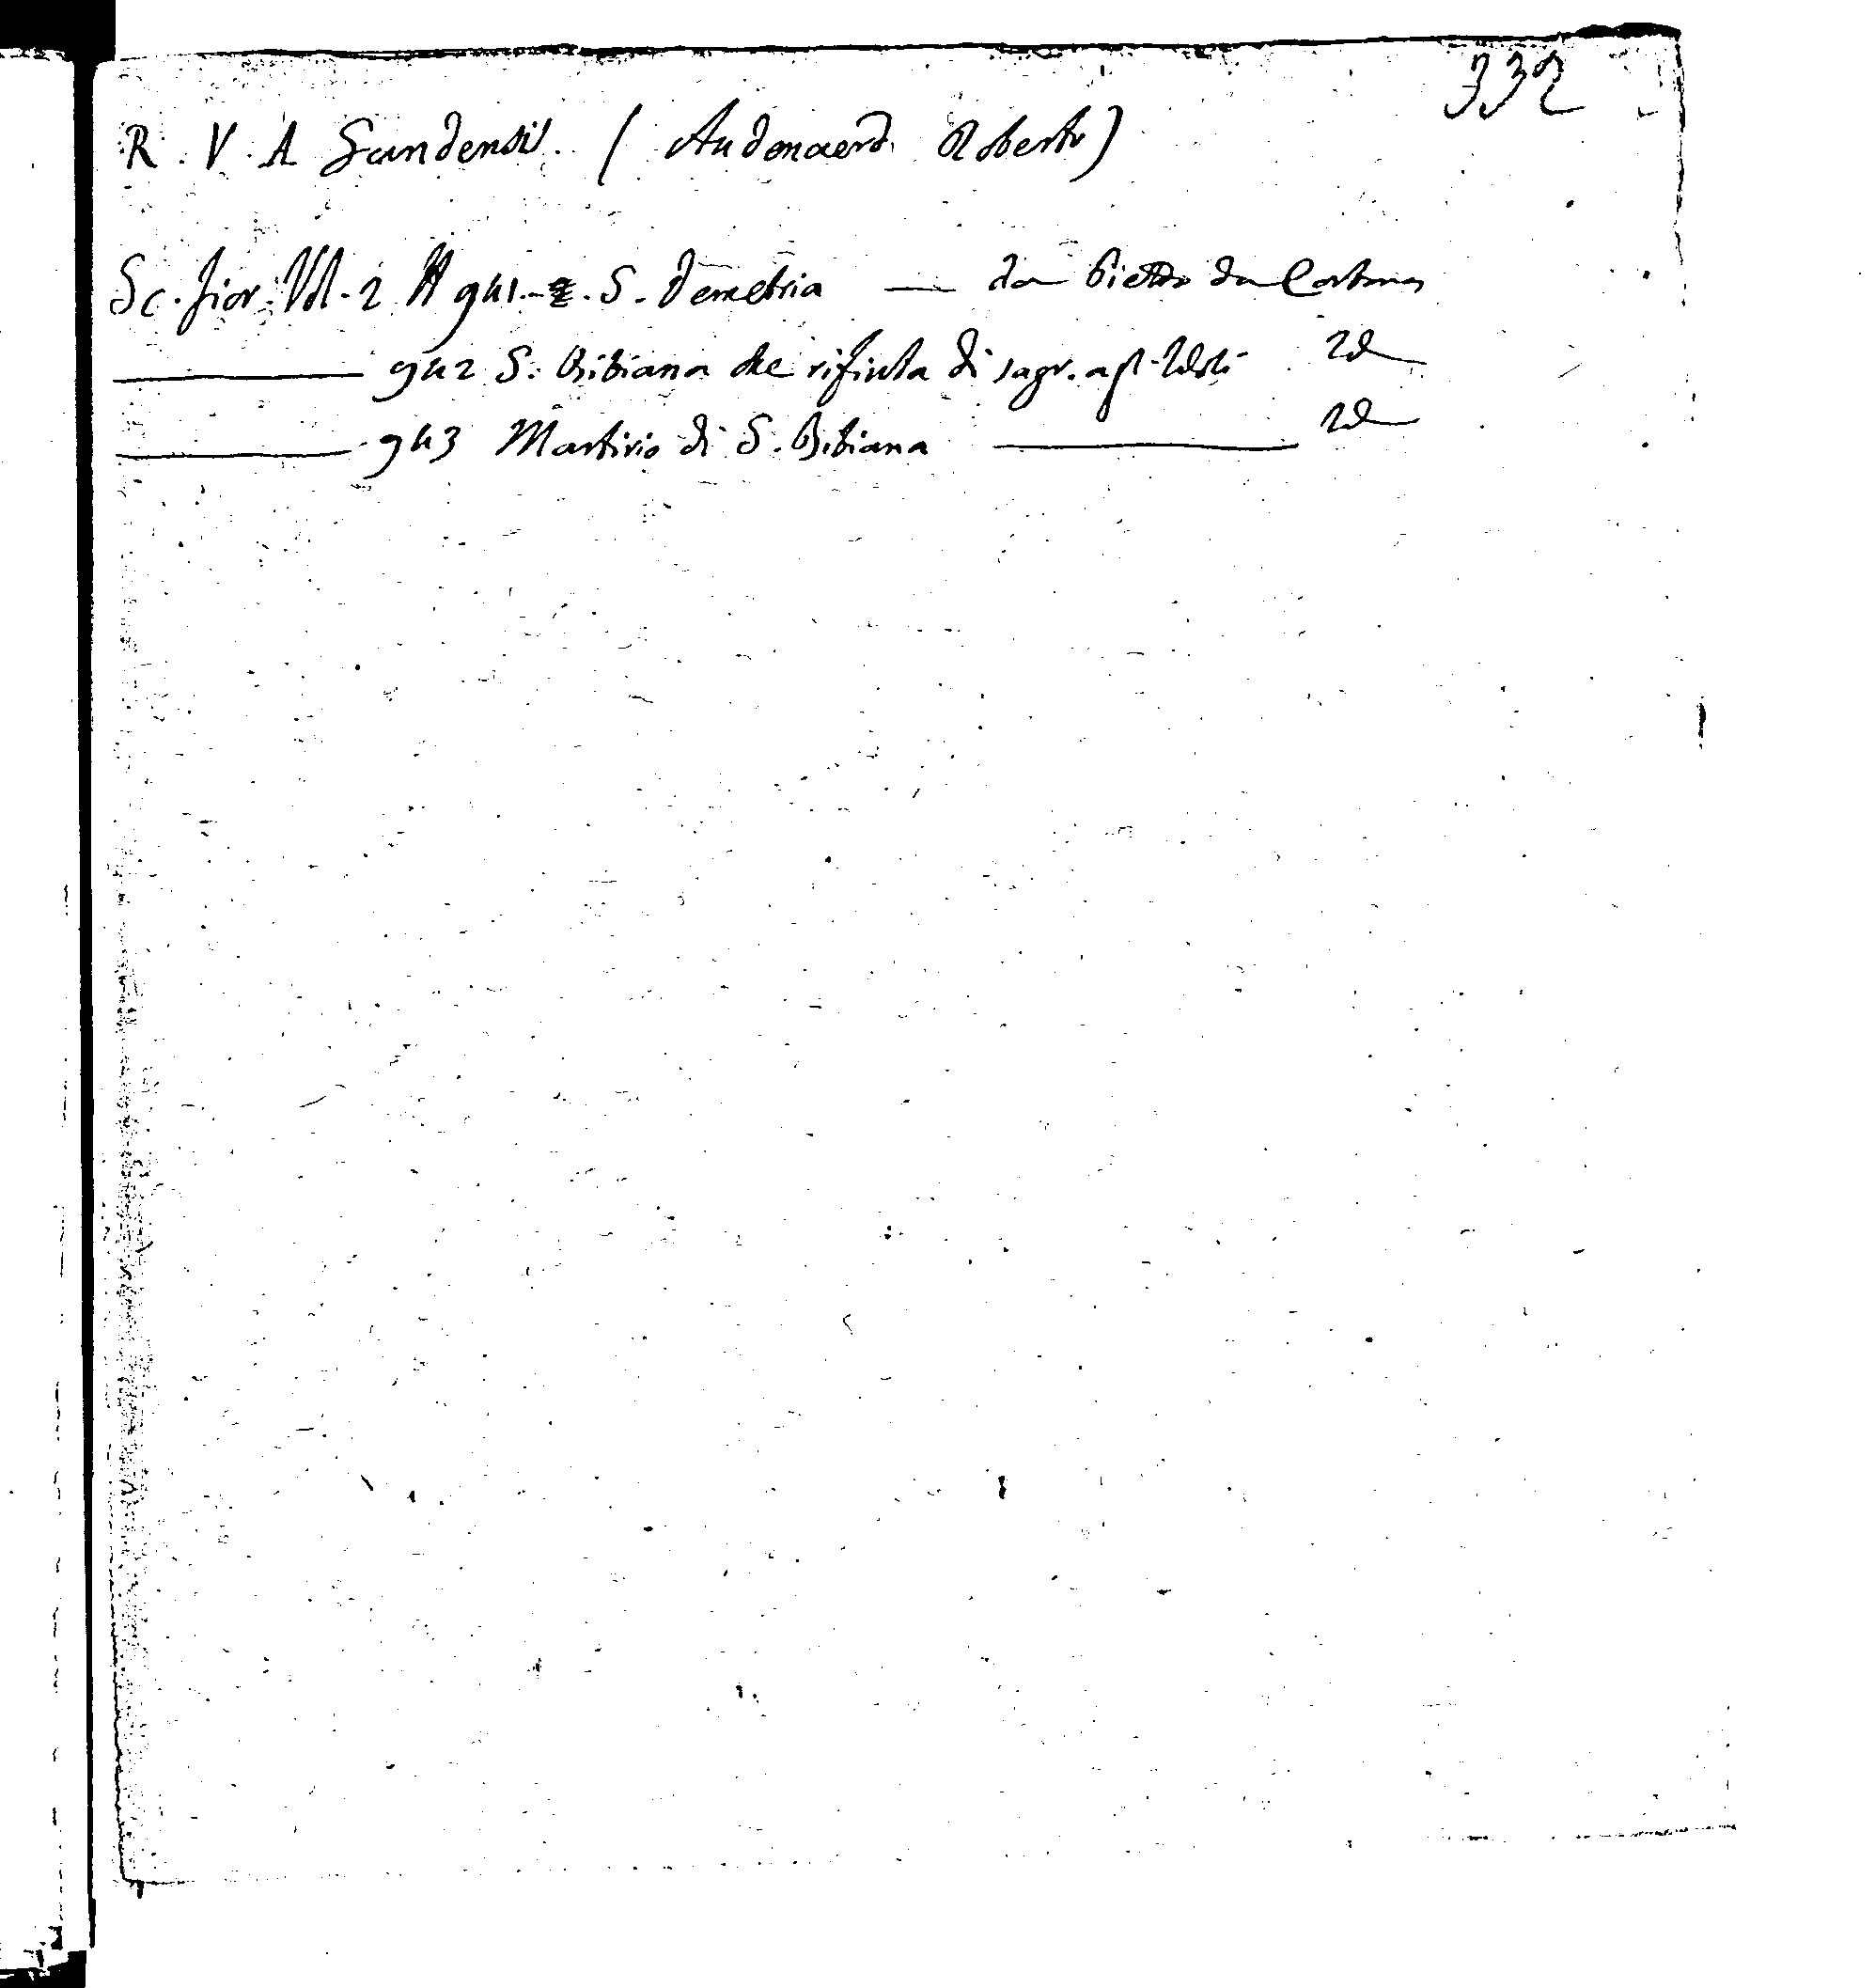 332
R. V. A Gandensis. ( Audenaerd Roberto)
Sc. fior. Vol. 2 N 941. S. Demetria — da Pietro da Cortona
942 S. Bibiana che rifiuta di sagr. agl'Idoli Id
943 Martirio di S. Bibiana — Id